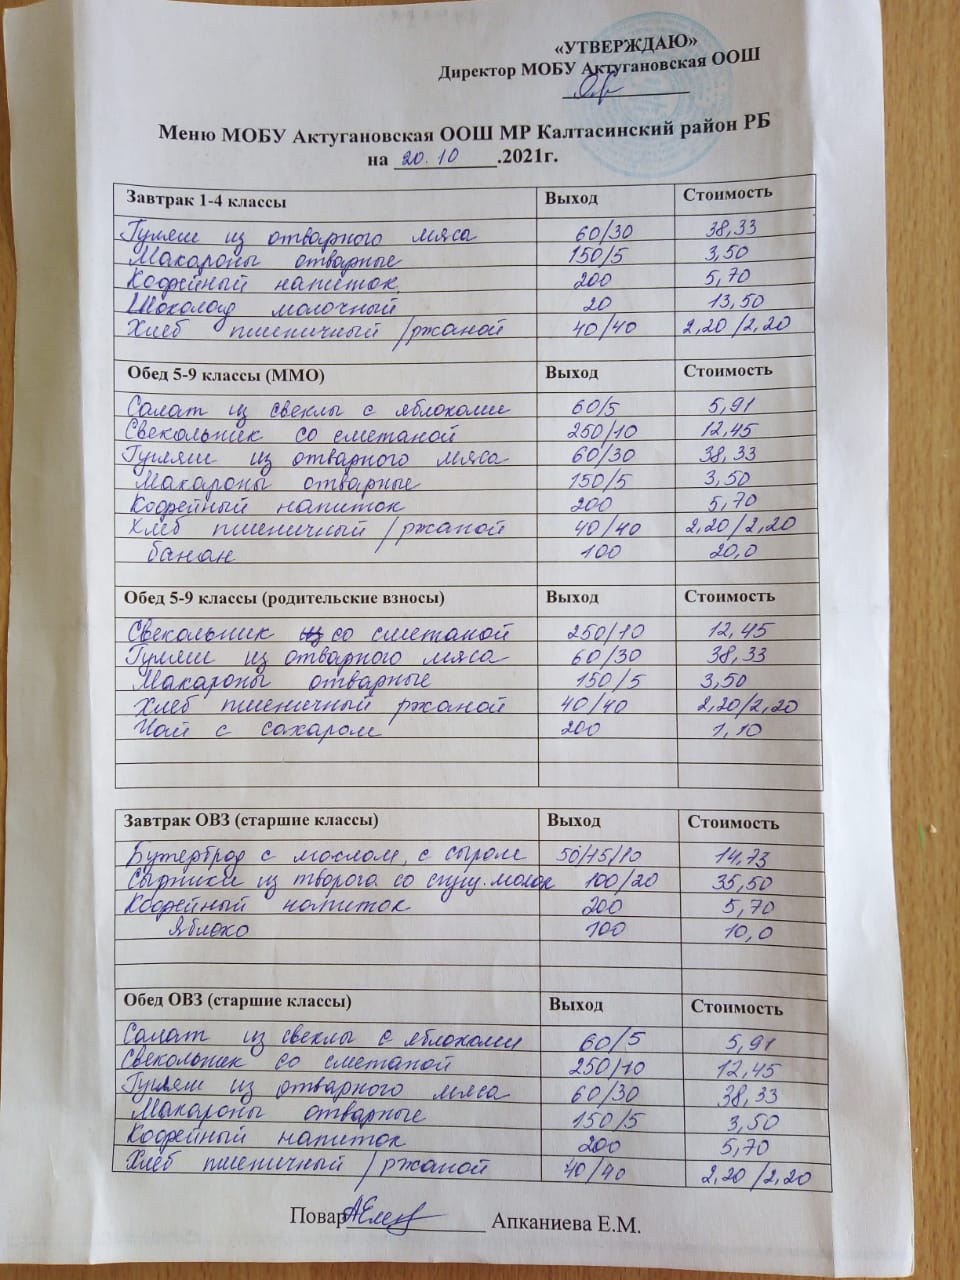 «УТВЕРЖДАЮ»
Директор МОБУ Актугановская ООШ
Меню МОБУ Актугановская ООШ МР Калтасинский район РБ
на 20.10 .2021г.
Завтрак 1-4 классы Выход Стоимость
Гуляш из отварного мяса 60/30 38,33
Макароны отварные 150/5 3,50
Кофейный напиток 200 5,70
Шоколад молочный 20 13,50
Хлеб пшеничный /ржаной 40/40 2,20/2,20
Обед 5-9 классы (ММО) Выход Стоимость
Салат из свеклы с яблоками 60/5 5,91
Свекольник со сметаной 250/10 12,45
Гуляш из отварного мяса 60/30 38,33
Макароны отварные 150/5 3,50
Кофейный напиток 200 5,70
Хлеб пшеничный /ржаной 40/40 2,20/2,20
банан 100 20,0
Обед 5-9 классы (родительские взносы) Выход Стоимость
Свекольник со сметаной 250/10 12,45
Гуляш из отварного мяса 60/30 38,33
Макароны отварные 150/5 3,50
Хлеб пшеничный ржаной 40/40 2,20/2,20
Чай с сахаром 200 1,10
Завтрак ОВЗ (старшие классы) Выход Стоимость
Бутерброд с маслом, с сыром 50/15/10 14,73
Сырники из творога со сгущ. молок 100/20 35,50
Кофейный напиток 200 5,70
Яблоко 100 10,0
Обед ОВЗ (старшие классы) Выход Стоимость
Салат из свеклы с яблоками 60/5 5,91
Свекольник со сметаной 250/10 12,45
Гуляш из отварного мяса 60/30 38,33
Макароны отварные 150/5 3,50
Кофейный напиток 200 5,70
Хлеб пшеничный /ржаной 40/40 2,20/2,20
Повар Апканиева Е.М.